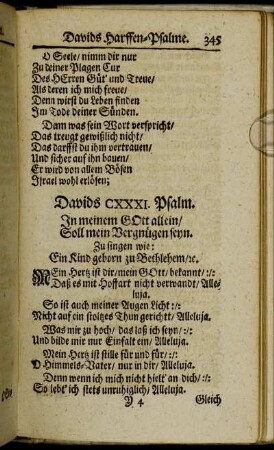 Davids Harffen-Psalme. 345
O Seele/ nimm dir nur
Zu deiner Plagen Cur
Des HErren Güt' und Treue/
Als deren ich mich freue/
Denn wirst du Leben finden
Im Tode deiner Sünden.
Dann was sein Wort verspricht/
Das treugt gewißlich nicht/
Das darffst du ihm vertrauen/
Und sicher auf ihn bauen/
Er wird von allem Bösen
Israel wohl erlösen;
Davids CXXXI. Psalm.
In meinem GOtt allein/
Soll mein Vergnügen seyn.
Zu singen wie:
Ein Kind geborn zu Bethlehem/ꝛc.
MEin Hertz ist dir/ mein GOtt/ bekannt/ :/:
Daß es mit Hoffart nicht verwandt/ Alle-
luja.
So ist auch meiner Augen Licht :/:
Nicht auf ein stoltzes Thun gericht/ Alleluja.
Was mir zu hoch/ das laß ich seyn/ :/:
Und bilde mir nur Einfalt ein/ Alleluja.
Mein Hertz ist stille für und für/ :/:
O Himmels-Vater/ nur in dir/ Alleluja.
Denn wenn ich mich nicht hielt' an dich/ :/:
So lebt' ich stets unruhiglich/ Alleluja.
Y 4 Gleich